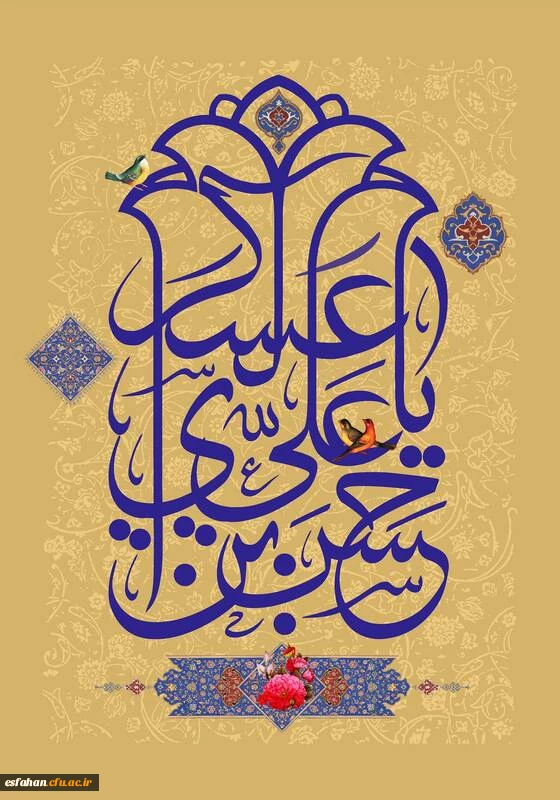 يا حسن بن علي العسكري
esfahan.cfu.ac.ir